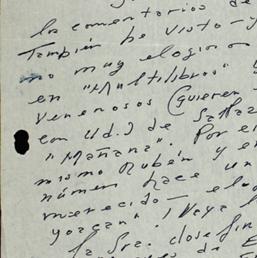 los comentarios de
También he visto — y
no muy elogioso
en "Multilibros" y
venenosos (quieren
con Ud.) de
"Mañana". Por e
mismo Rubén y e
número hace un
merecido — elo
! Vaya l
la Sra. Josefin
de E